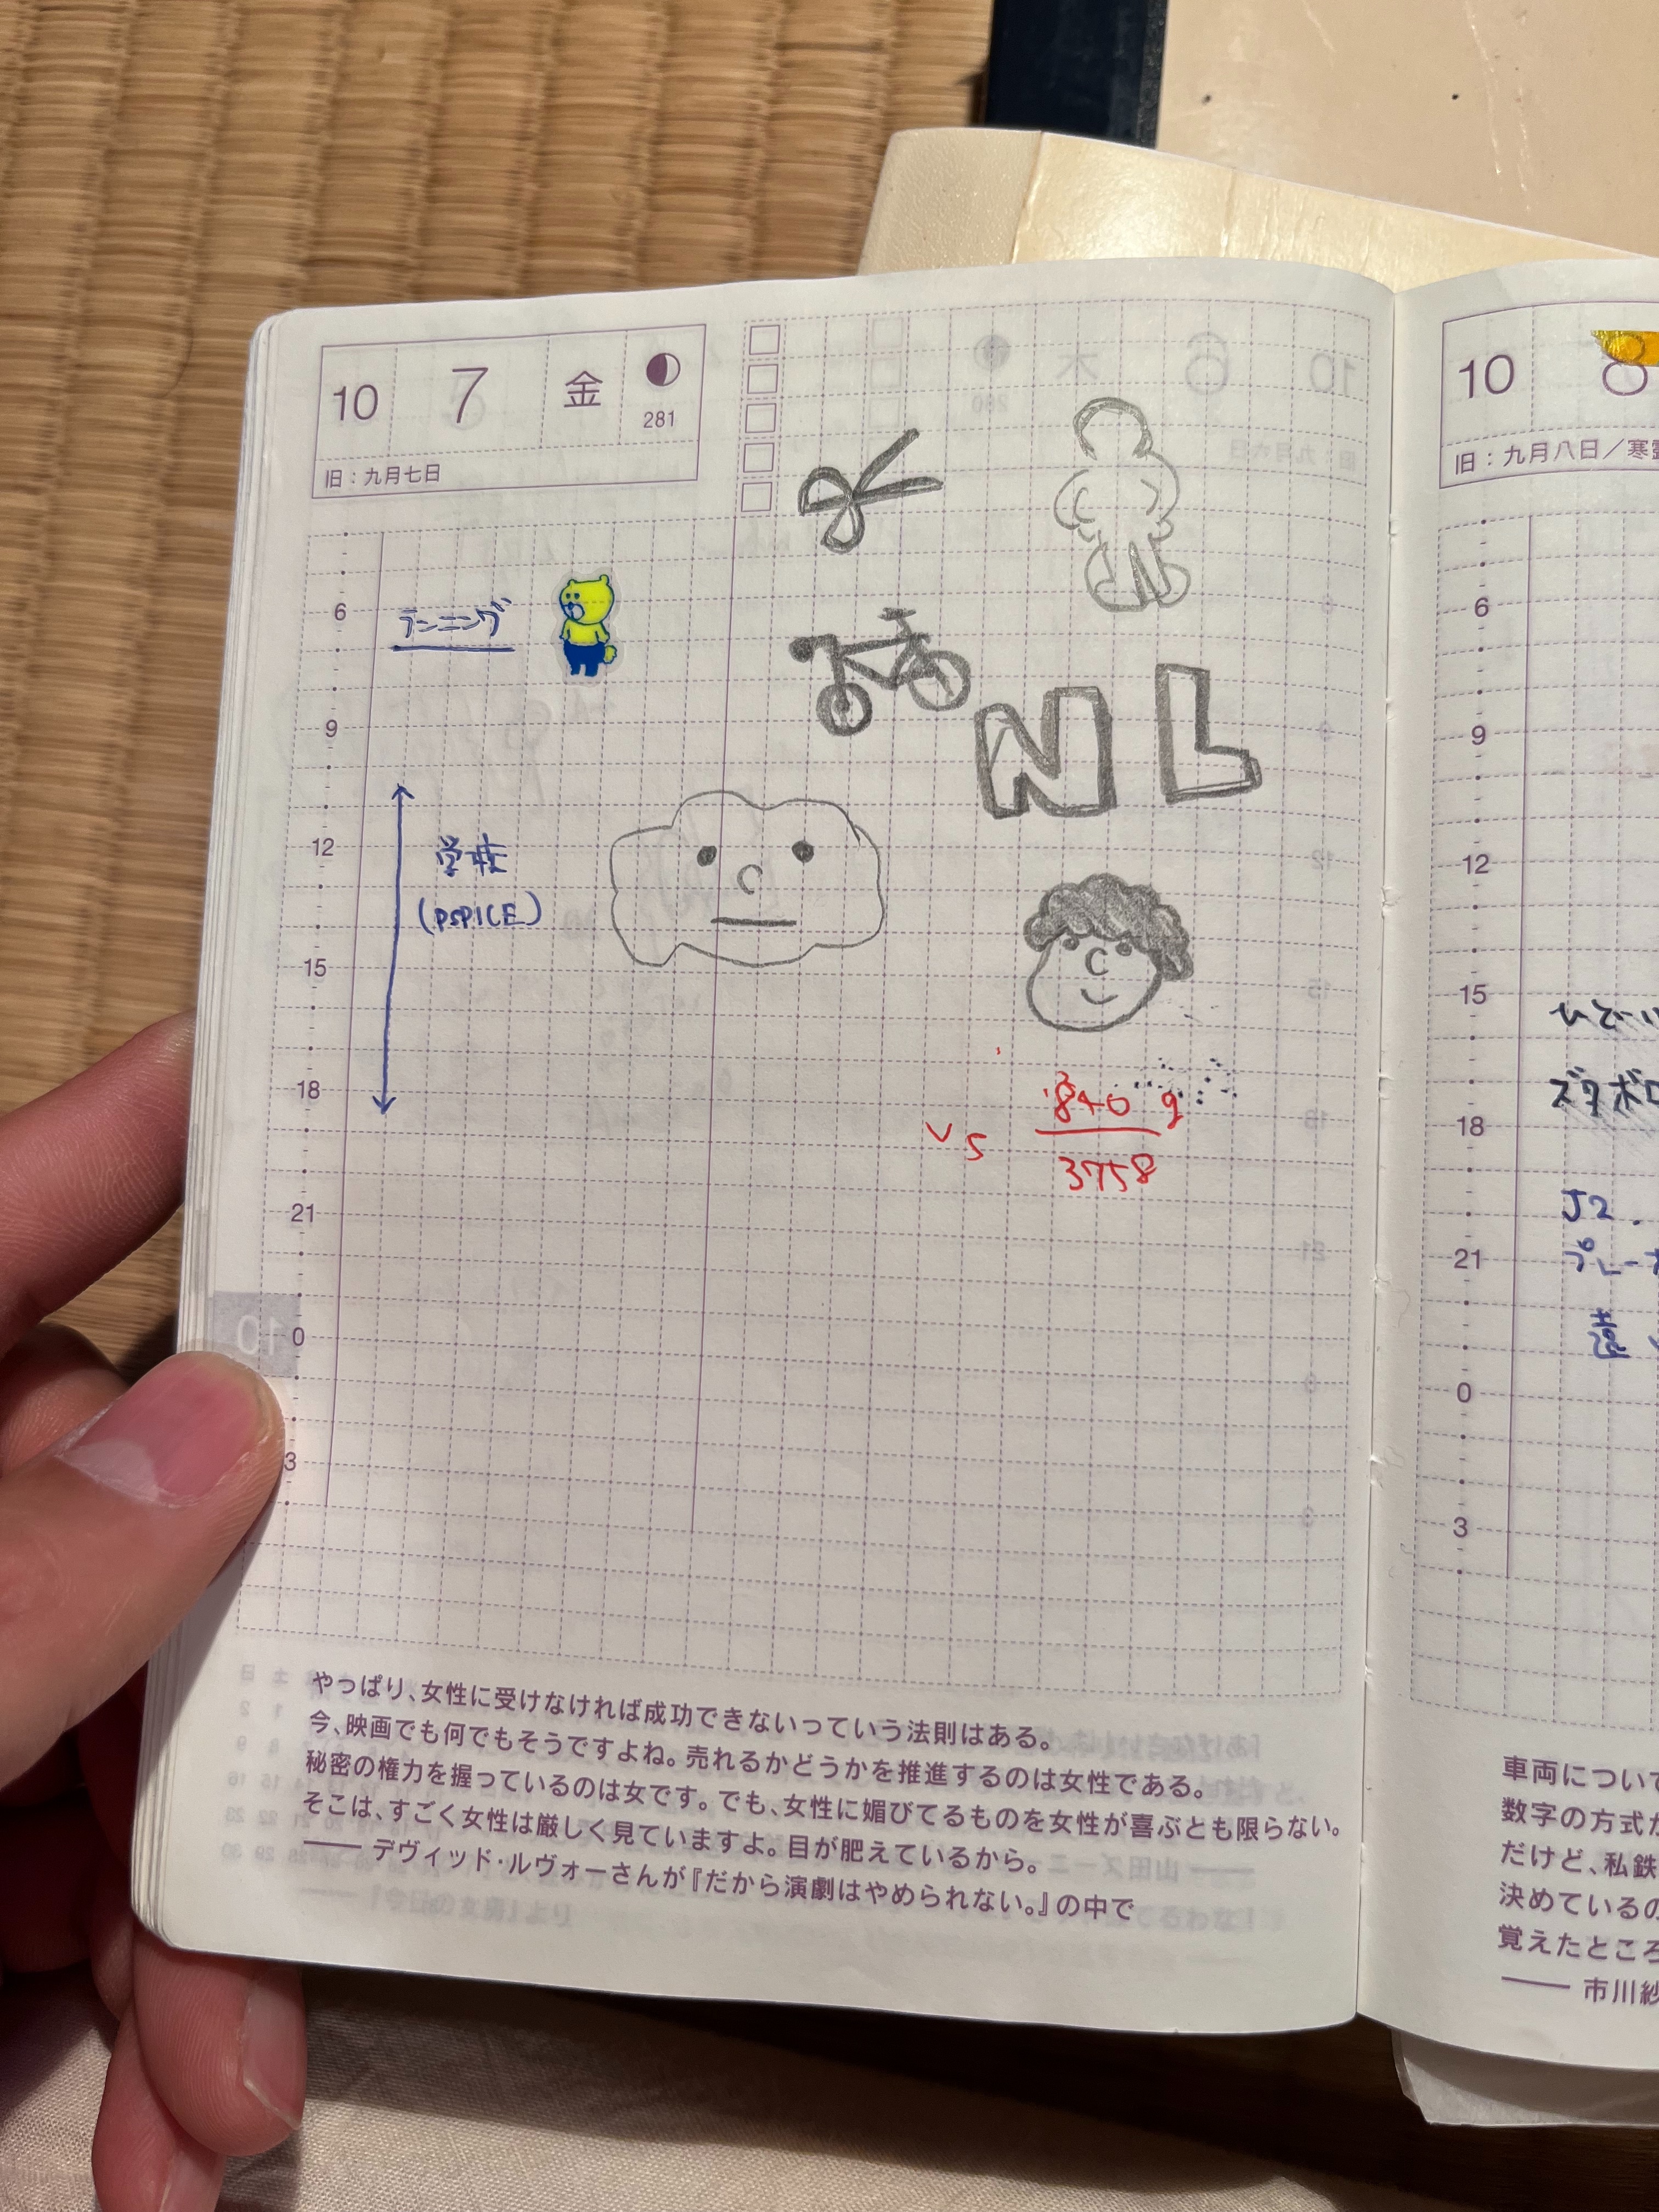 10 7 金
281
旧：九月七日
6
ランニング
9
N L
12
学校
(PSPICE)
15
18
840 g
vs
3758
21
10
0
3
やっぱり、女性に受けなければ成功できないっていう法則はある。
今、映画でも何でもそうですよね。売れるかどうかを推進するのは女性である。
秘密の権力を握っているのは女です。でも、女性に媚びてるものを女性が喜ぶとも限らない。
そこは、すごく女性は厳しく見ていますよ。目が肥えているから。
—— デヴィッド・ルヴォーさんが『だから演劇はやめられない。』の中で
10 8
旧：九月八日／寒露
6
9
12
15
ズタボロ
18
J2.
21
プレーオ
遠い
0
3
車両について
数字の方式が
だけど、私鉄
決めているの
覚えたところ
—— 市川紗